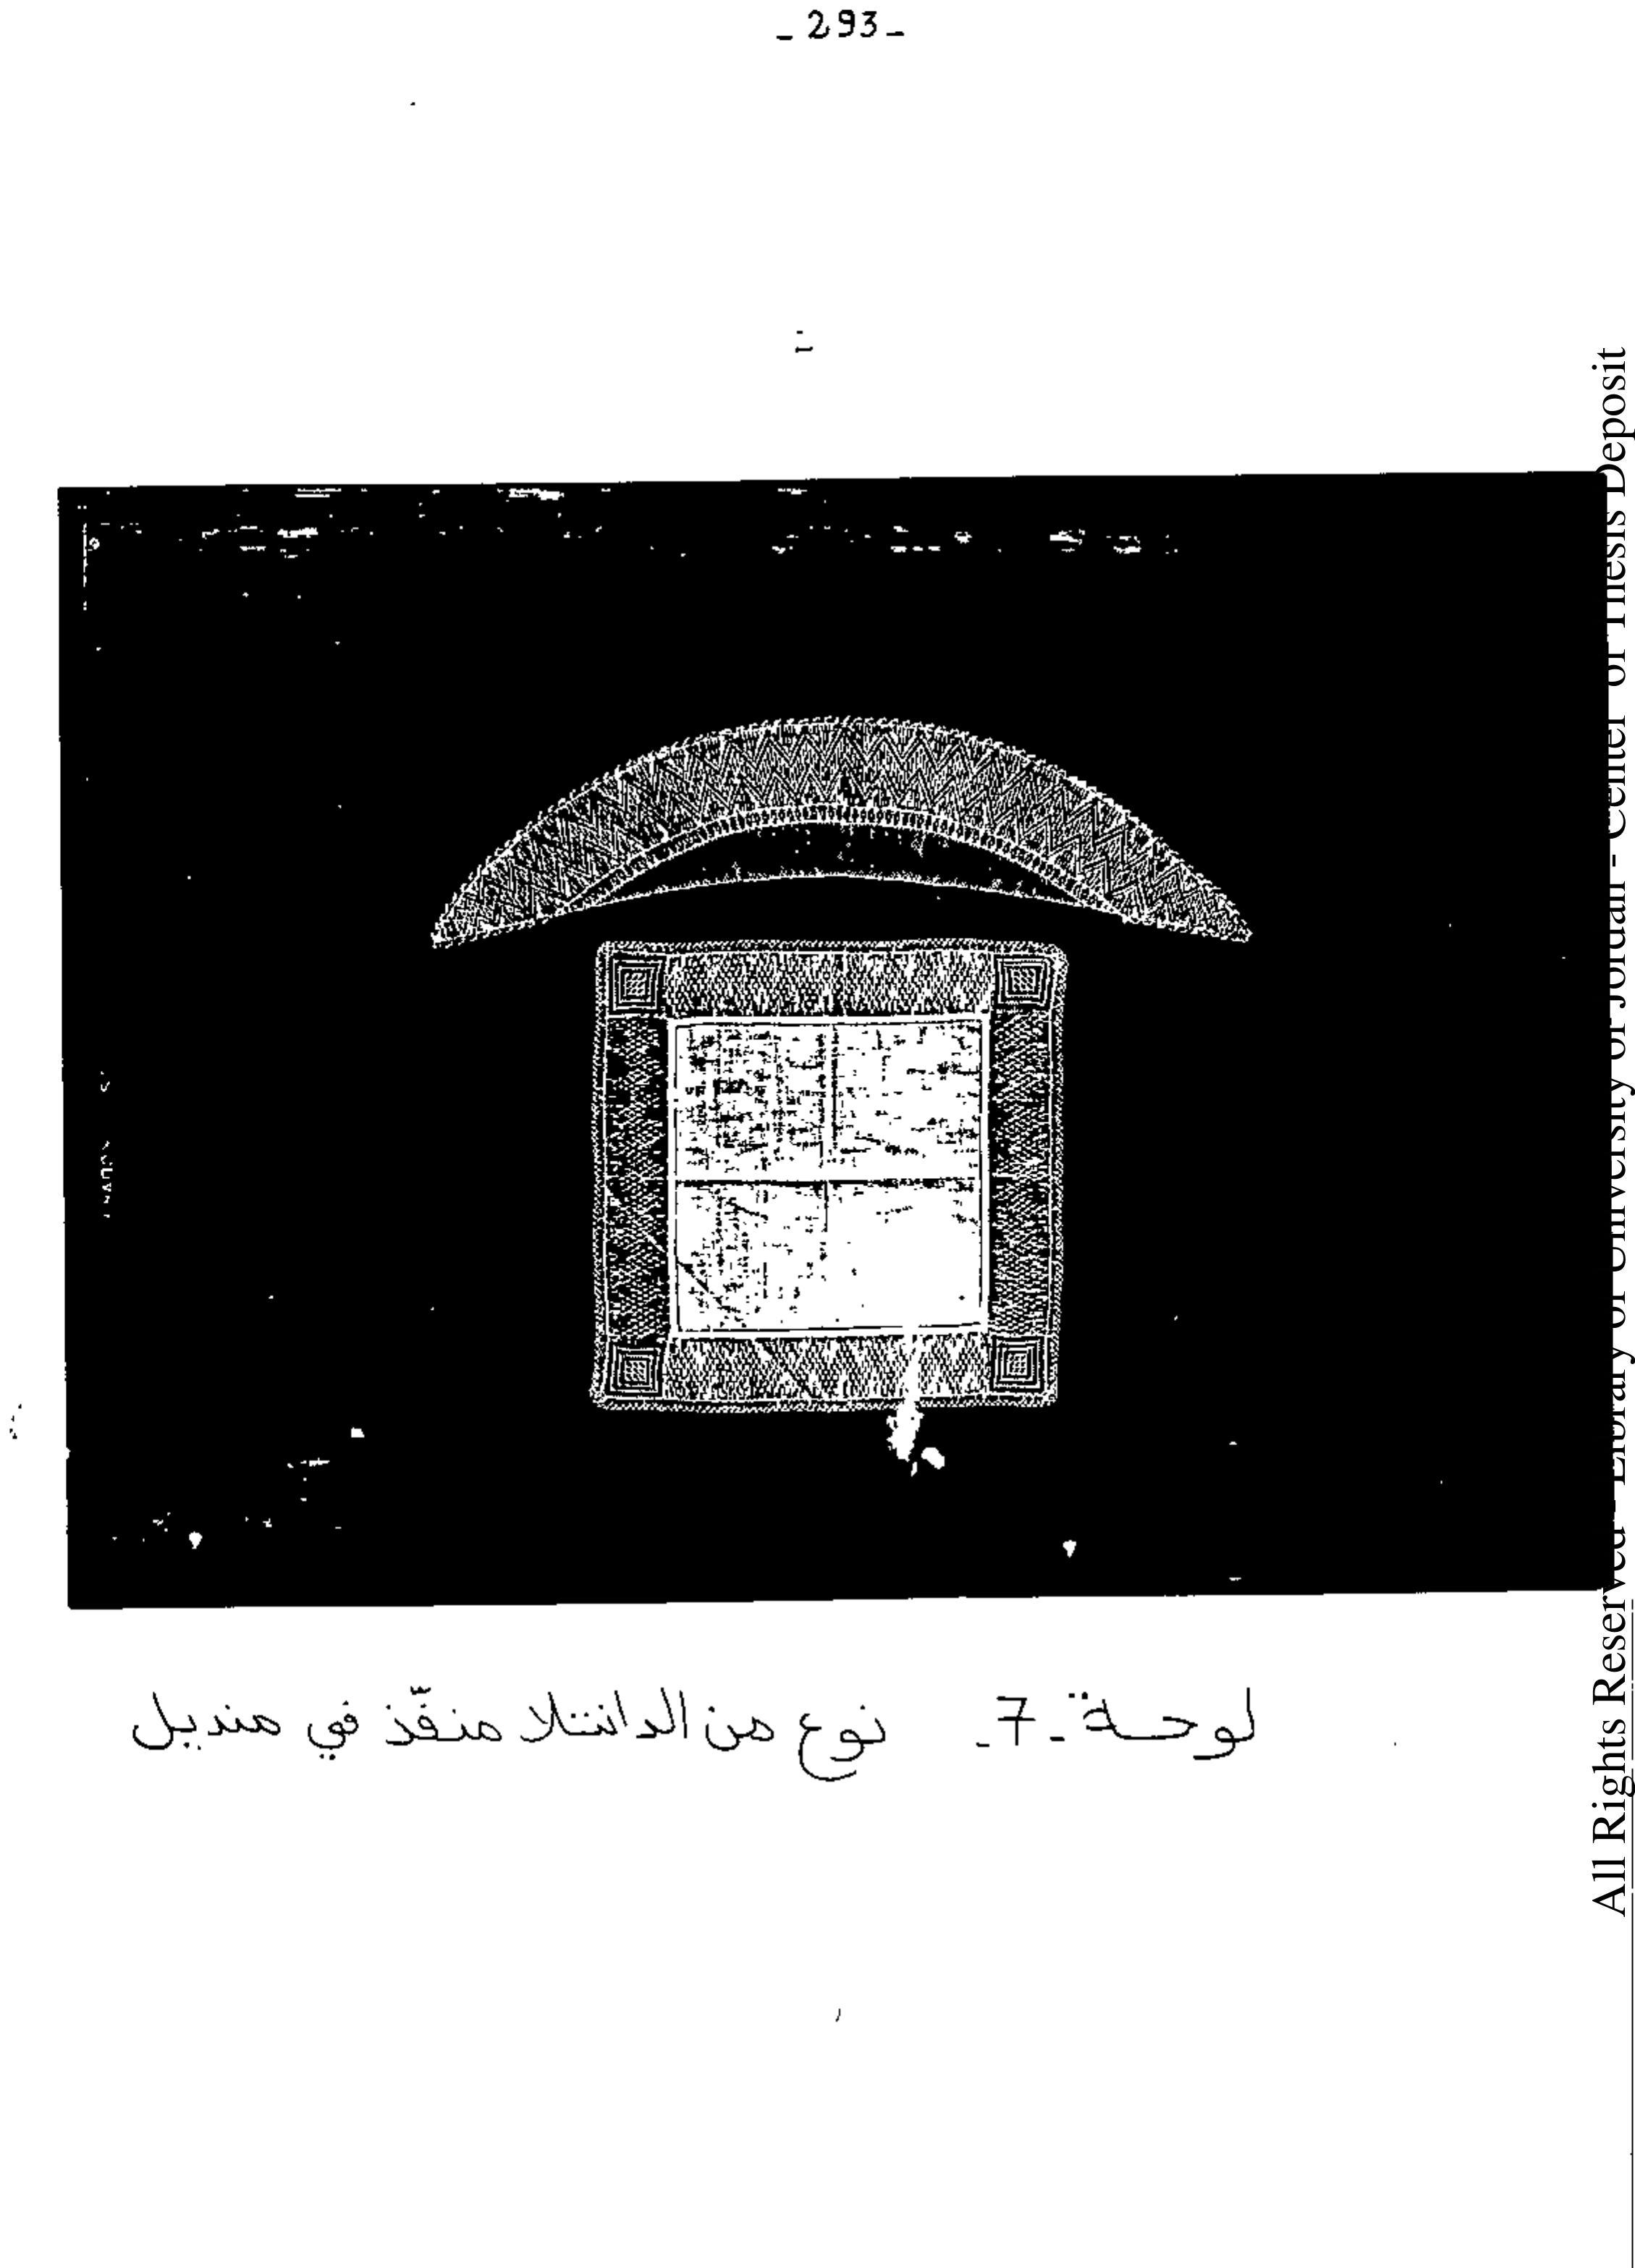 - 293 -
لوحة - 7 - نوع من الدانتلا منفّذ في منديل
All Rights Reserved - Library of University of Jordan - Center of Thesis Deposit